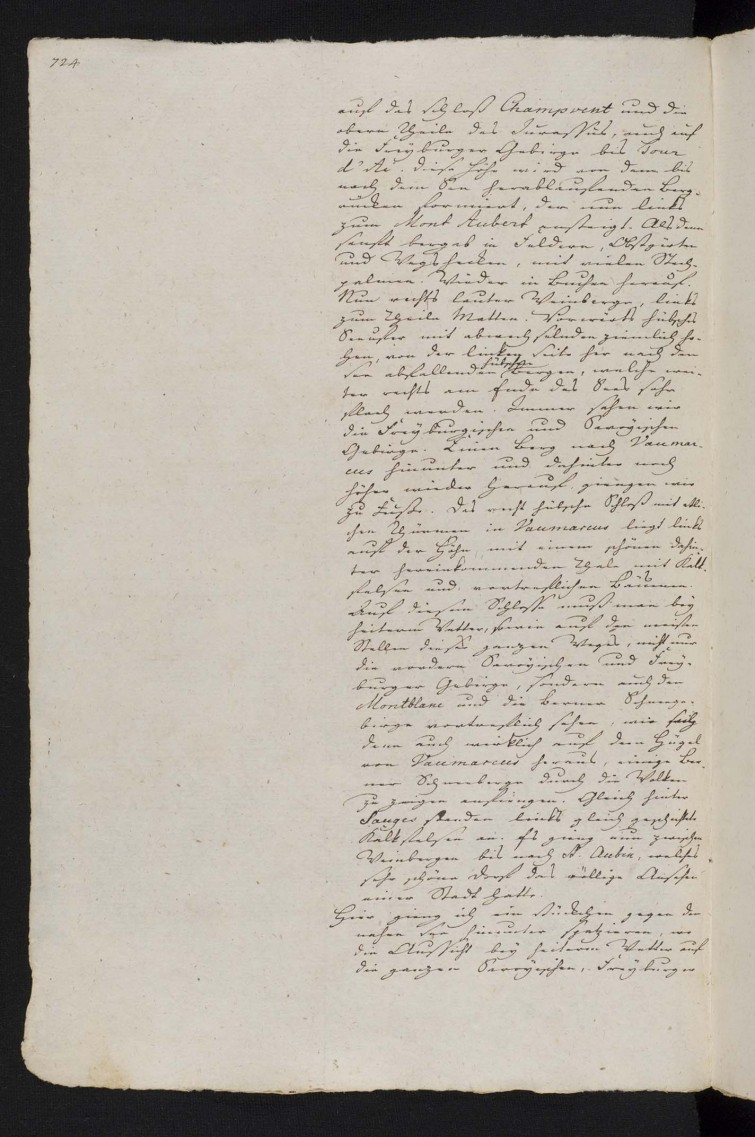 724.
auf das Schloß Champvent und die
obern Theile des Jurassus, auch auf
die Freyburger Gebirge bis Tour
d'Ai. Diese Höhe wird von dem bis
nach dem See herablaufenden Berg-
rücken formiert, der nun links
zum Mont Aubert ansteigt. Alsdenn
sanft bergab in Feldern, Obstgärten
und Weghecken, mit vielen Stech-
palmen. Wieder in Buchen herauf.
Nun rechts lauter Weinberge, links
zum Theile Matten. Vorwärts hübsches
Seeufer mit abwechselnden ziemlich ho-
hen, von der linken Seite her nach dem
See abfallenden hübschen Bergen, welche wei-
ter rechts am Ende des Sees sehr
flach werden. Immer sahen wir
die Freyburgischen und Savoyischen
Gebirge. Einen Berg nach Vaumar-
cus hinunter und dahinter noch
höher wieder herauf, giengen wir
zu Fusse. Das recht hübsche Schloß mit etli-
chen Thürmen in Vaumarcus liegt links
auf der Höhe, mit einem schönen dahin-
ter hereinkommenden Thale mit Kalk-
felsen und vortreflichen Bäumen.
Auf diesem Schlosse muß man bey
heiterm Wetter, sowie auf den meisten
Stellen dieses ganzen Weges, nicht nur
die vordern Savoyischen und Frey-
burger Gebirge, sondern auch den
Montblanc und die Berner Schneege-
birge vortreflich sehen, wie sich
denn auch wirklich auf dem Hügel
von Vaumarcus heraus, einige Ber-
ner Schneeberge durch die Wolken
zu zeigen anfiengen. Gleich hinter
Sauges stehen links gleich geschichtete
Kalkfelsen an. Es gieng nun zwischen
Weinbergen bis nach St. Aubin, welches
sehr schöne Dorf das völlige Ansehen
einer Stadt hatte.
Hier gieng ich ein Stückchen gegen den
nahen See hinunter spatzieren, wo
die Aussicht bey heiterm Wetter auf
die ganzen Savoyischen, Freyburger